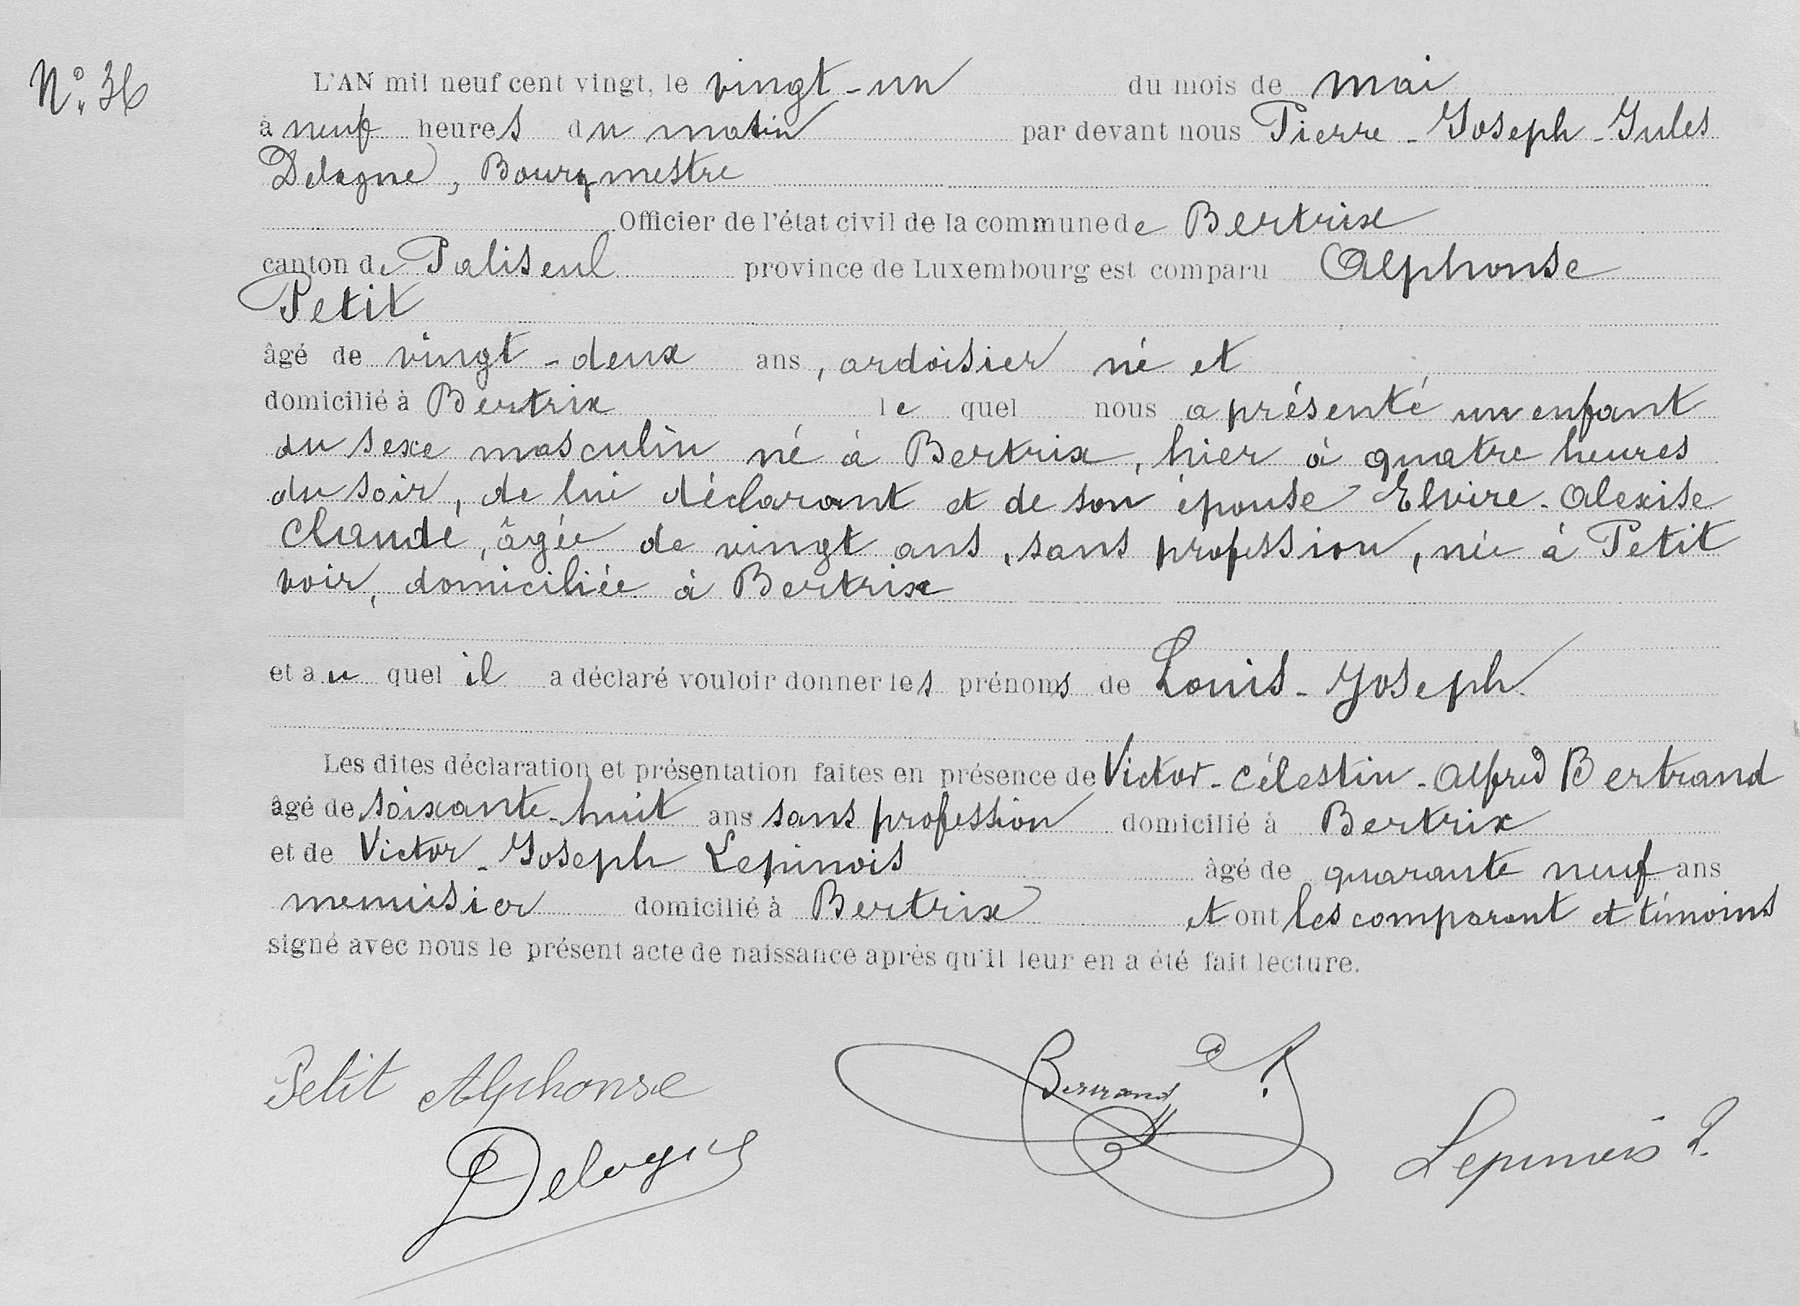 N° 36
L'AN mil neuf cent vingt, le vingt-un du mois de mai
à neuf heures du matin par devant nous Pierre-Joseph-Jules
Delogne, Bourgmestre
Officier de l'état civil de la commune de Bertrix
canton de Paliseul province de Luxembourg est comparu Alphonse
Petit
âgé de vingt-deux ans, ardoisier né et
domicilié à Bertrix le quel nous a présenté un enfant
du sexe masculin né à Bertrix, hier à quatre heures
du soir, de lui déclarant et de son épouse Elvire-Alexise
Claude, âgée de vingt ans, sans profession, née à Petit
voir, domiciliée à Bertrix
et au quel il a déclaré vouloir donner les prénoms de Louis-Joseph.
Les dites déclaration et présentation faites en présence de Victor-Célestin-Alfred Bertrand
âgé de soixante-huit ans sans profession domicilié à Bertrix
et de Victor-Joseph Lepinois âgé de quarante neuf ans
menuisier domicilié à Bertrix et ont les comparant et témoins
signé avec nous le présent acte de naissance après qu'il leur en a été fait lecture.
Petit Alphonse Bertrand
Delogne Lepinois